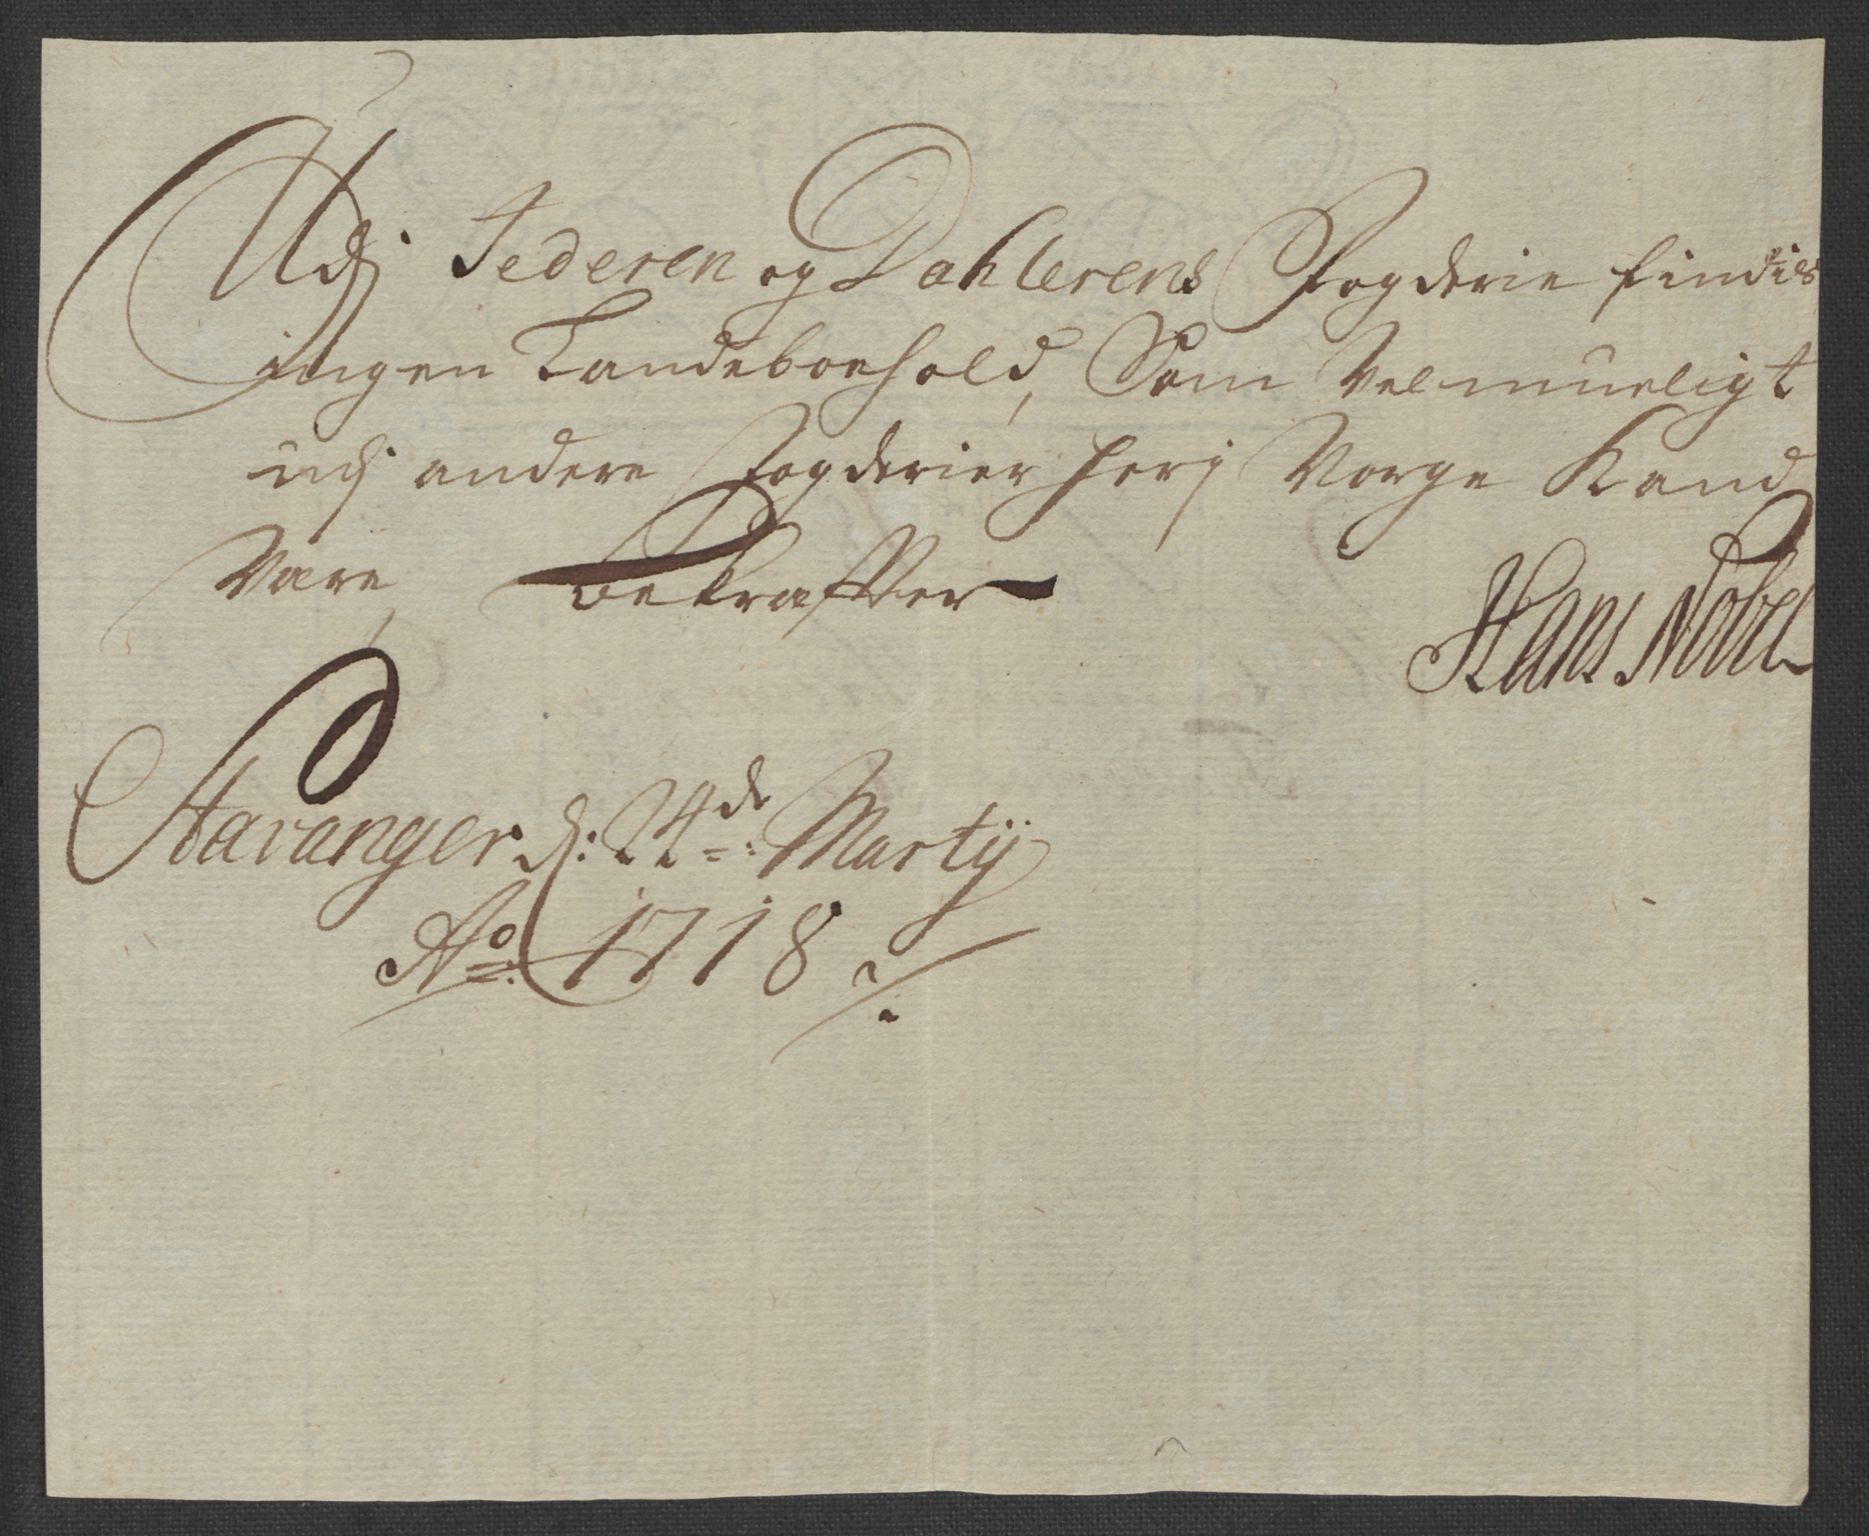 Udj Jederen og Dahlerens Fogderie findis
ingen Landeboehold, Som Vel mueligt
udj andere Fogderier her j Norge Kand
Være, bekræffter
Hans Nobel
Stavanger d: 24de: Martij
Ao: 1718 ⁒